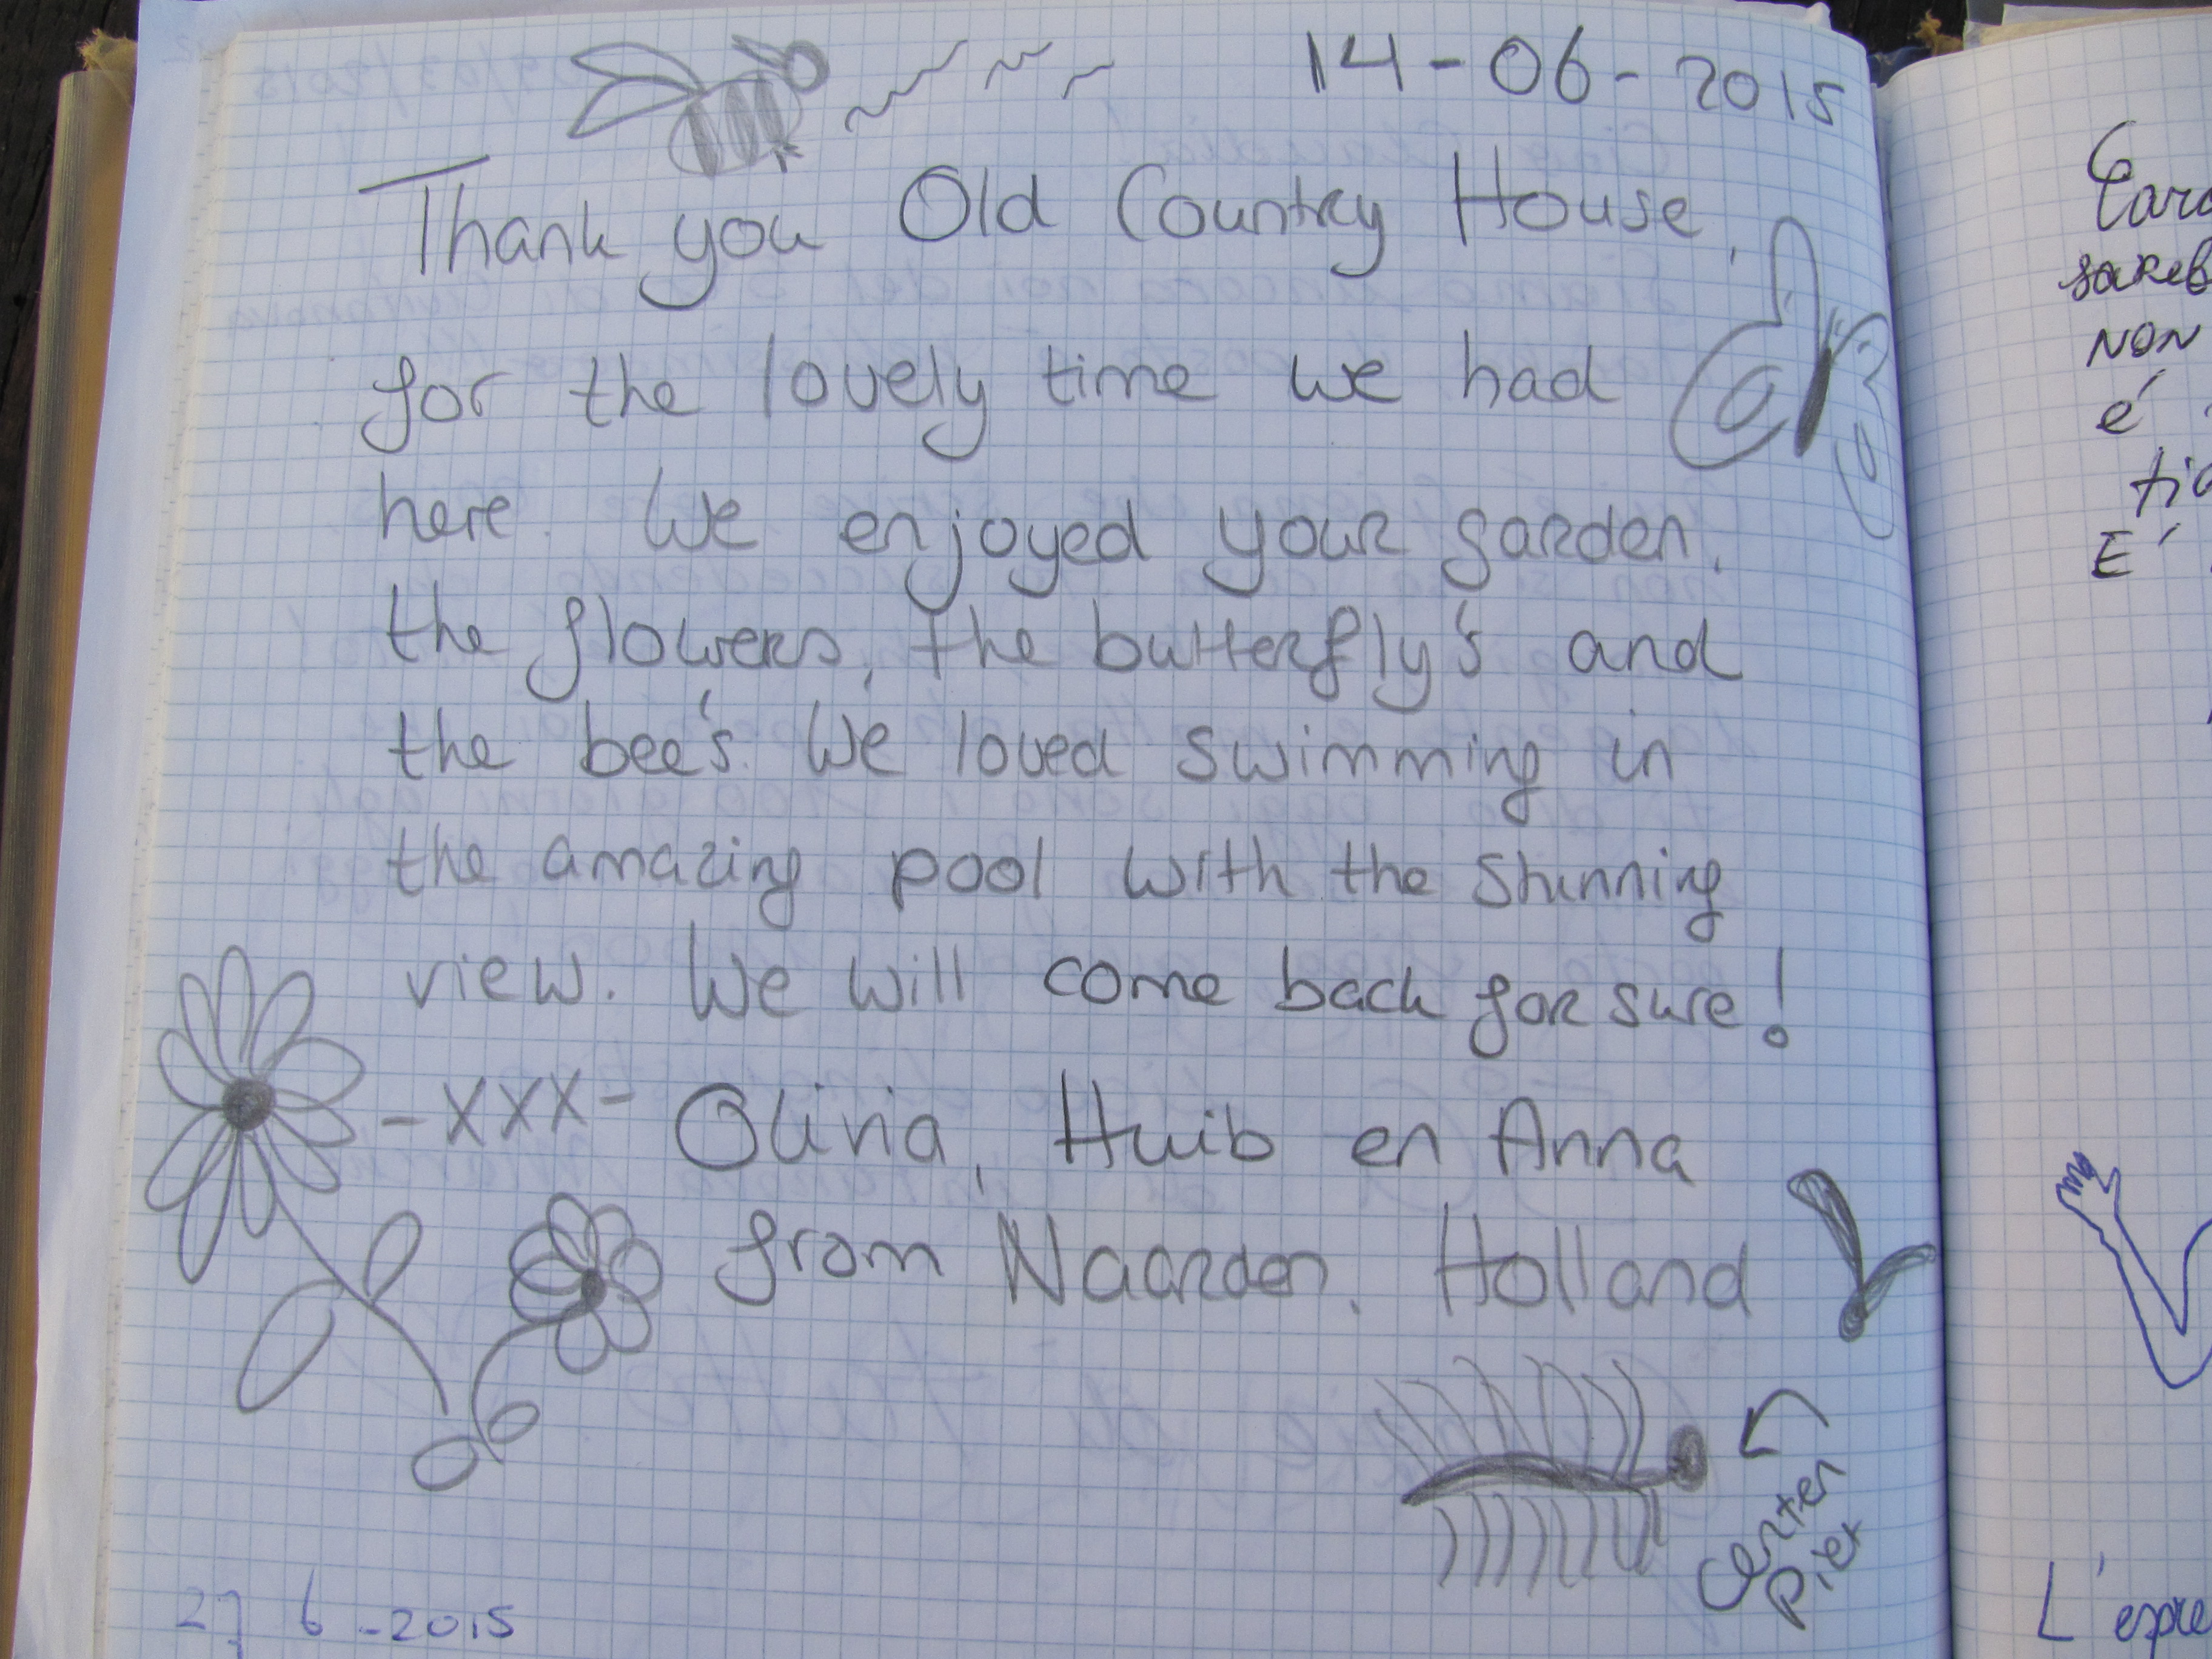 14-06-2015
Thank you Old Country House,
for the lovely time we had
here. We enjoyed your garden,
the flowers, the butterfly's and
the bee's. We loved swimming in
the amazing pool with the stunning
view. We will come back for sure!
-XXX- Olivia, Huib en Anna
from Naarden, Holland
Centen
Piet
27 6 -2015
non
é
E'
L'